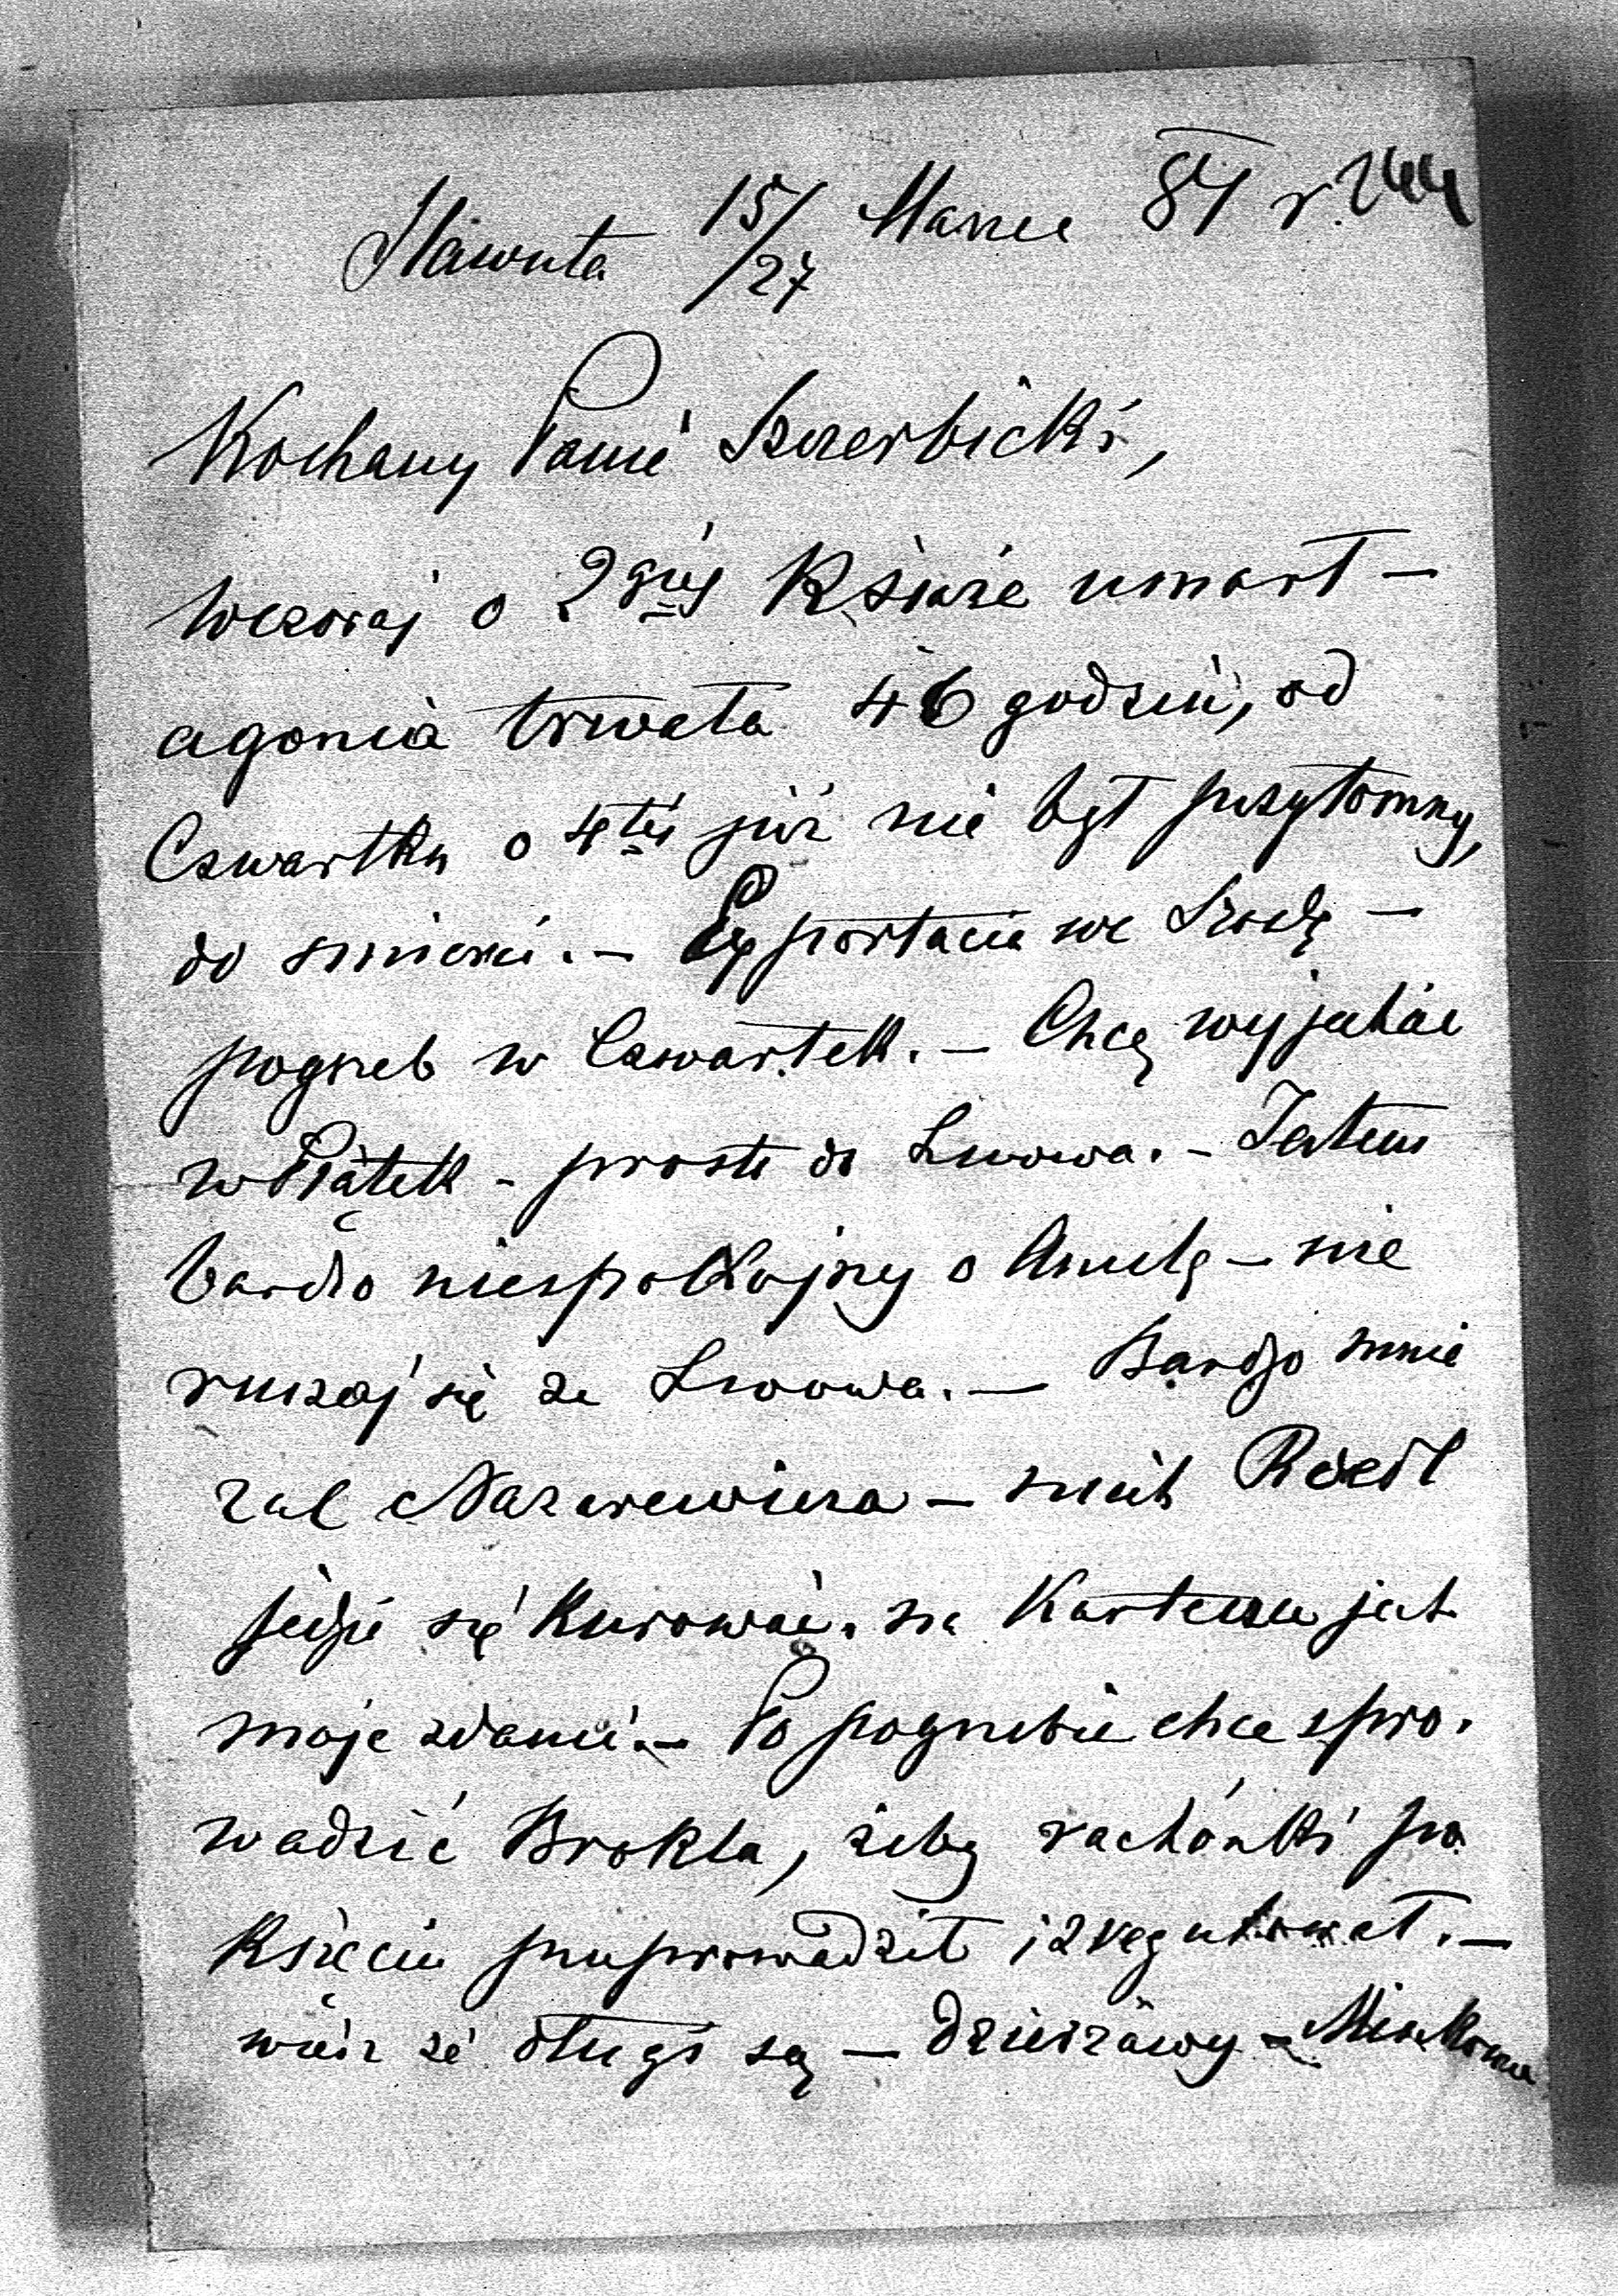 Sławuta 15/27 Marca 81 r. 244
Kochany Panie Szczerbicki,
Wczoraj o 2giéj Książe umarł —
agonia trwała 46 godzin, od
Czwartku o 4téj już nie był przytomny,
do smierci. — Exportacia we Srodę —
pogrzeb w Czwartek. — Chcę wyjechać
w Piątek - prosto do Lwowa. - Jestem
bardzo niespokojny o Anulę — nie
ruszaj się ze Lwowa. — Bardzo mnie
żal Nazarewicza — niech Roedl
jedzie się kurować. na
moje zdanie. — Po pogrzebie chce spro.
wadzić Brokla, żeby rachónki po
Księciu przeprowadził i zregulował. —
wiész że długi są — dzierżawy —